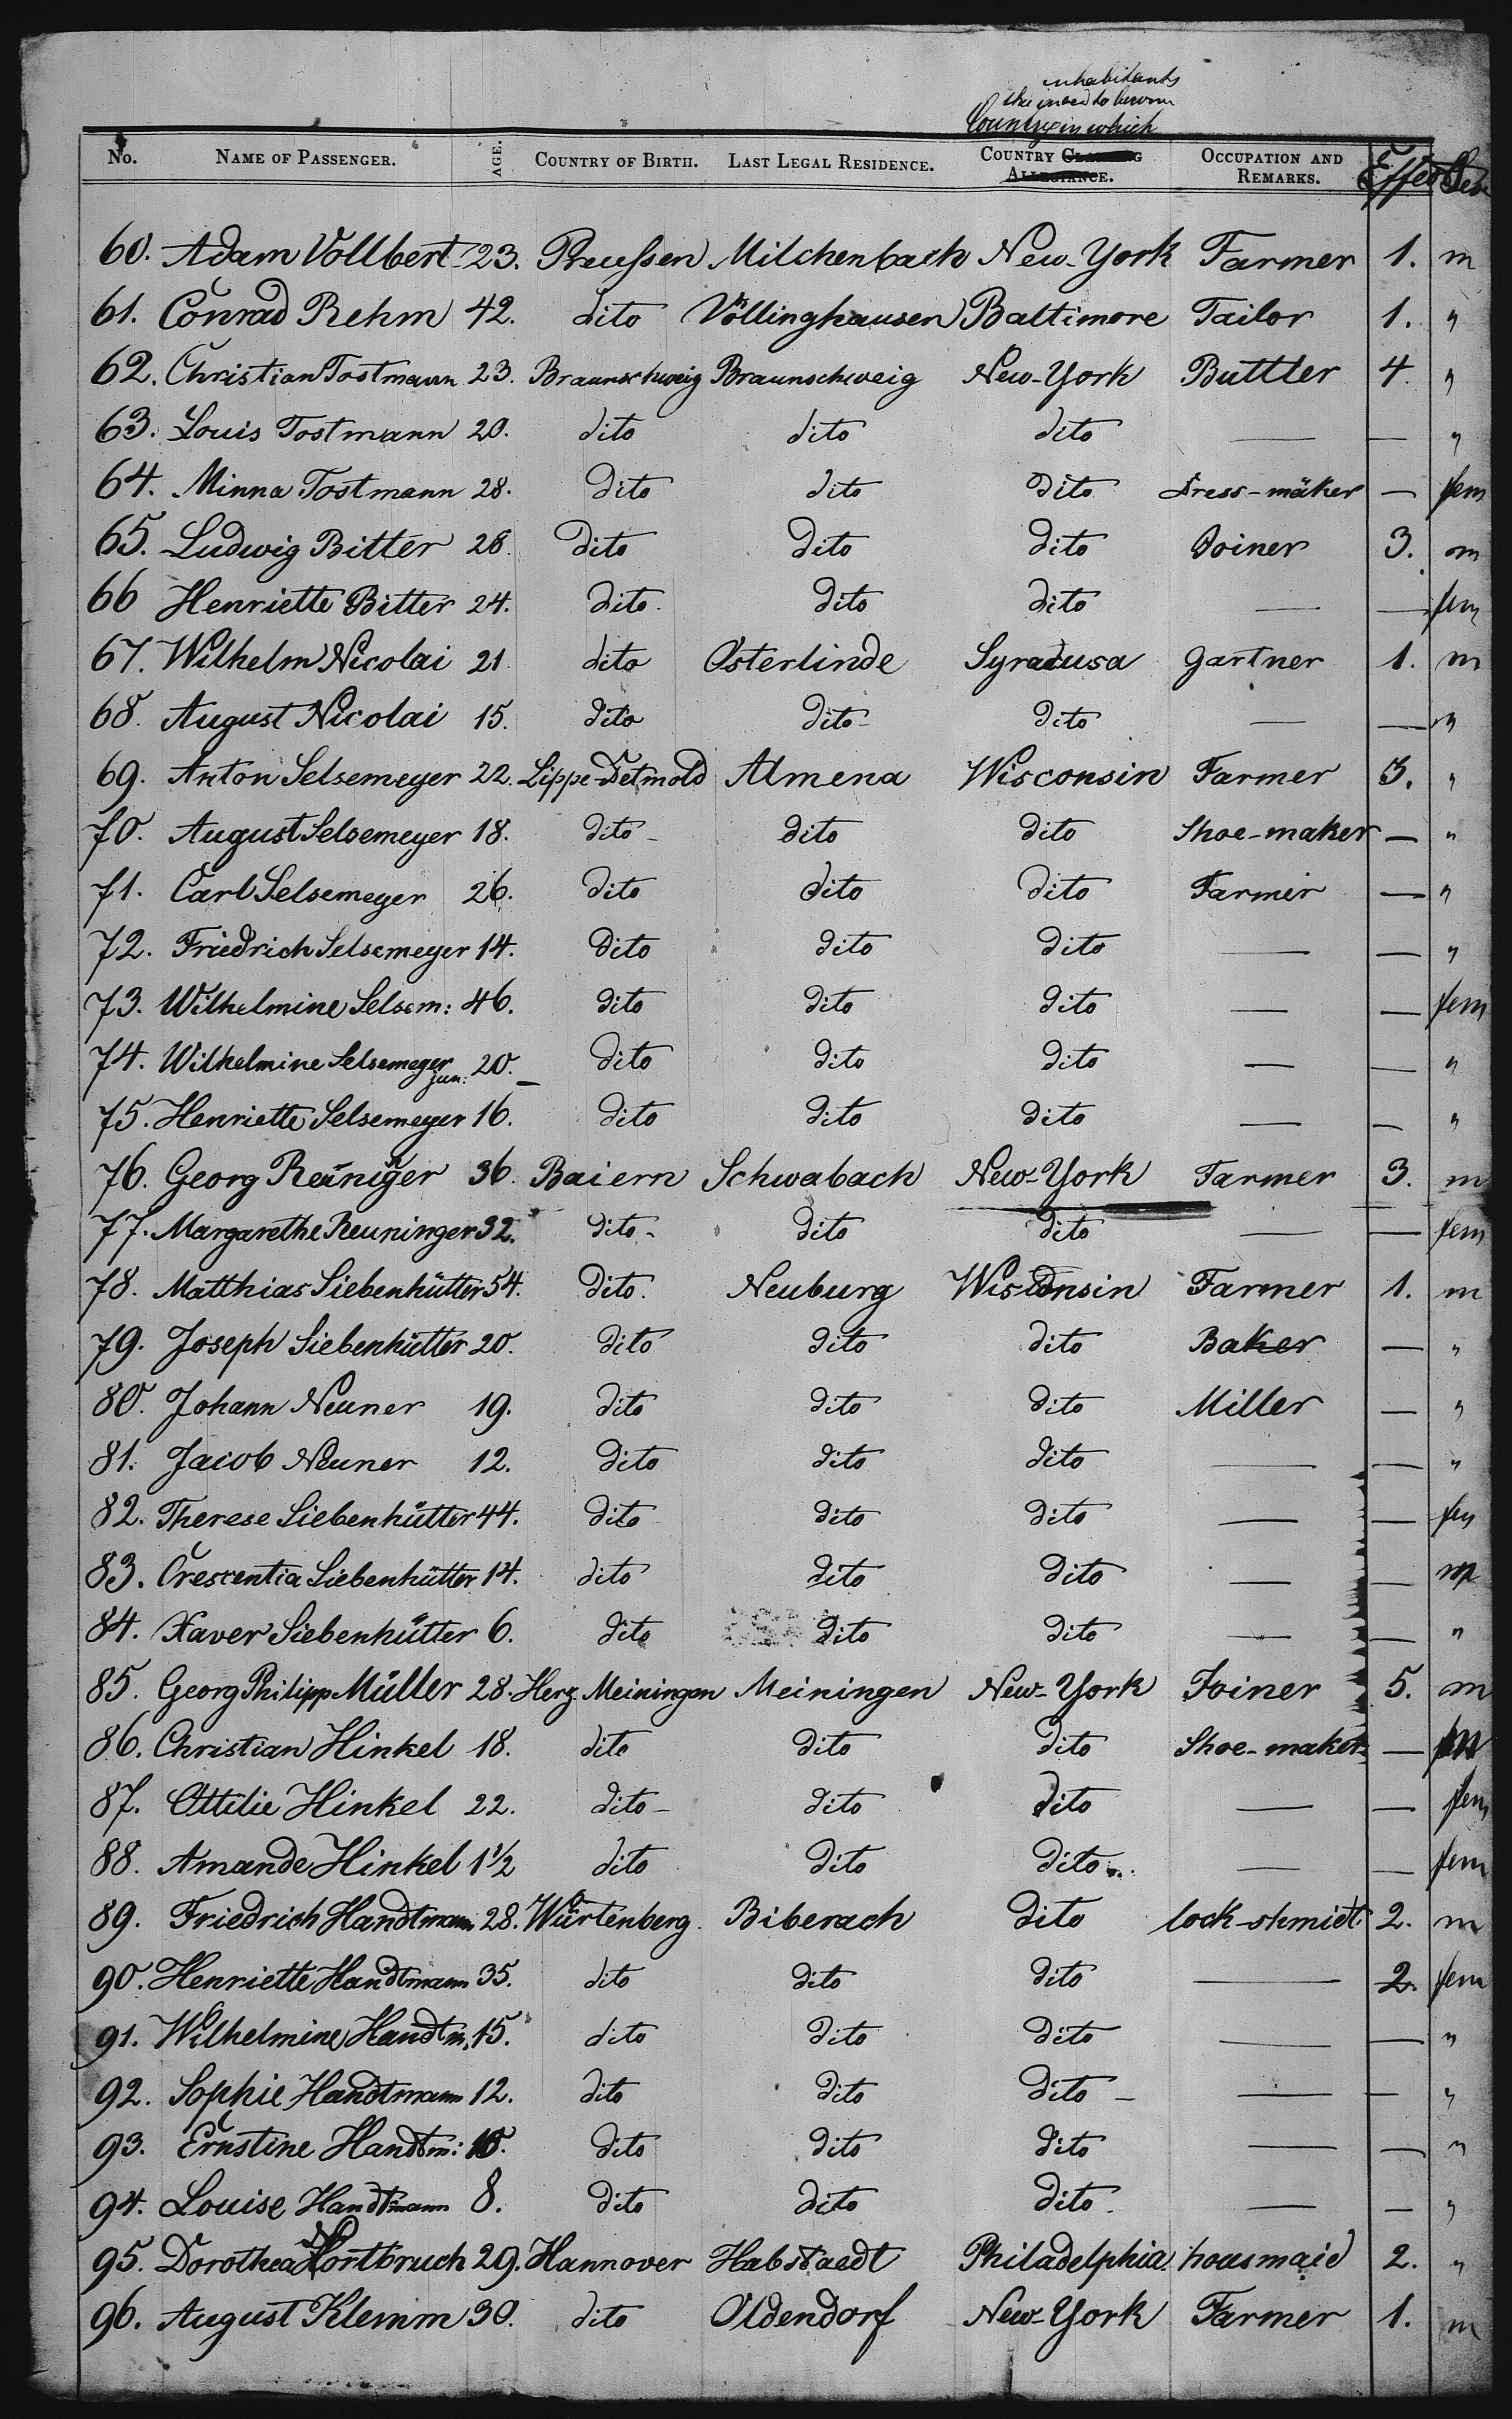 inhabitants
Country in which
No. NAME OF PASSENGER. AGE. COUNTRY OF BIRTH. LAST LEGAL RESIDENCE. COUNTRY CLAIMING ALLEGIANCE. OCCUPATION AND REMARKS. Effect Sex
60. Adam Vollbert 23. Preußen Milchenbach New-York Farmer 1. m
61. Conrad Rehm 42. dito Völlinghausen Baltimore Tailor 1. "
62. Christian Tostmann 23. Braunschweig Braunschweig New-York Buttler 4. "
63. Louis Tostmann 20. dito dito dito — — "
64. Minna Tostmann 28. dito dito dito dress-mäker — fem
65. Ludwig Bitter 28. dito dito dito Joiner 3. m
66 Henriette Bitter 24. dito dito dito — — fem
67. Wilhelm Nicolai 21. dito Osterlinde Syracusa Gartner 1. m
68. August Nicolai 15. dito dito dito — — "
69. Anton Selsemeyer 22. Lippe-Detmold Almena Wisconsin Farmer 3. "
70. August Selsemeyer 18. dito dito dito Shoe-maker — "
71. Carl Selsemeyer 26. dito dito dito Farmer — "
72. Friedrich Selsemeyer 14. dito dito dito — — "
73. Wilhelmine Selsem: 46. dito dito dito — — fem
74. Wilhelmine Selsemeyer jun: 20. dito dito dito — — "
75. Henriette Selsemeyer 16. dito dito dito — — "
76. Georg Reuniger 36. Baiern Schwabach New-York Farmer 3. m
77. Margarethe Reuninger 32. dito dito dito — — fem
78. Matthias Siebenhütter 54. dito. Neuburg Wisconsin Farmer 1. m
79. Joseph Siebenhütter 20. dito dito dito Baker — "
80. Johann Neuner 19. dito dito dito Miller — "
81. Jacob Neuner 12. dito dito dito — — "
82. Therese Siebenhütter 44. dito dito dito — — fem
83. Crescentia Siebenhütter 14. dito dito dito — —
84. Xaver Siebenhütter 6. dito dito dito — — "
85. Georg Philipp Müller 28. Herz. Meiningen Meiningen New-York Joiner 5. m
86. Christian Hinkel 18. dito dito dito Shoe-maker — m
87. Ottilie Hinkel 22. dito dito dito — — fem
88. Amande Hinkel 1½ dito dito dito — — fem
89. Friedrich Handtmann 28. Würtenberg. Biberach dito lock-shmidt 2. m
90. Henriette Handtmann 35. dito dito dito — 2. fem
91. Wilhelmine Handtm. 15. dito dito dito — — "
92. Sophie Handtmann 12. dito dito dito — — "
93. Ernstine Handtm: 10. dito dito dito — — "
94. Louise Handtmann 8. dito dito dito — — "
95. Dorothea Nortbruch 29. Hannover Habstaedt Philadelphia housmaid 2. "
96. August Klemm 30. dito Oldendorf New-York Farmer 1. m